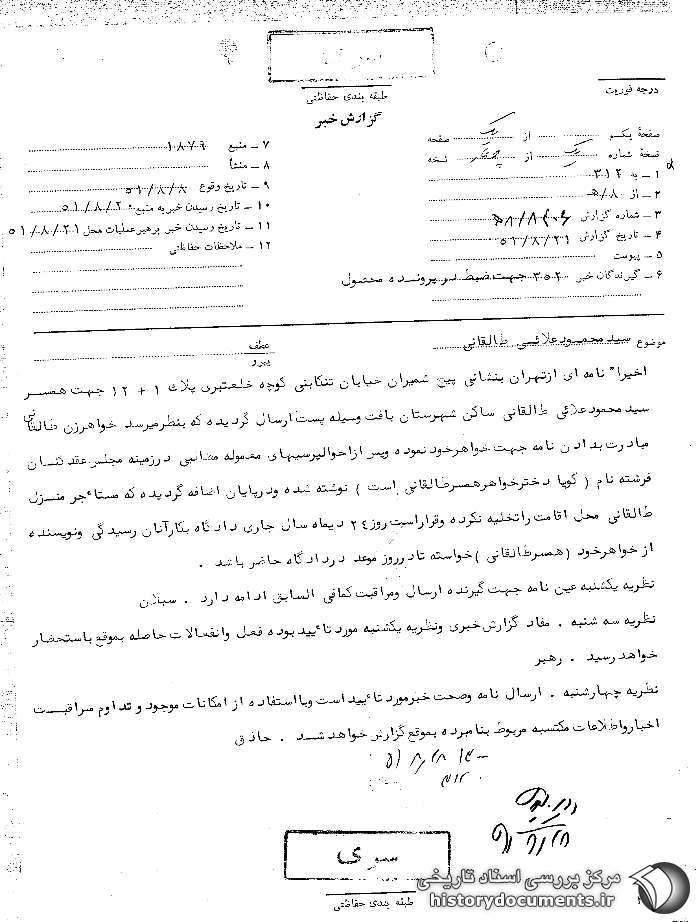 سری
طبقه بندی حفاظتی
گزارش خبر
درجه فوریت
صفحهٔ یکم از یک صفحه
نسخهٔ شماره یک از نسخه
۱ ـ به ۳۱۲
۲ ـ از ۸/ه
۳ ـ شماره گزارش
۴ ـ تاریخ گزارش ۵۱/۸/۲۱
۵ ـ پیوست
۶ ـ گیرندگان خبر ۳۵۲ جهت ضبط در پرونده محتسول
۷ ـ منبع ۱۸۷۹
۸ ـ منشأ
۹ ـ تاریخ وقوع ۵۱/۸/۸
۱۰ ـ تاریخ رسیدن خبر به منبع ۵۱/۸/۲۰
۱۱ ـ تاریخ رسیدن خبر برهبر عملیات محل ۵۱/۸/۲۱
۱۲ ـ ملاحظات حفاظتی
موضوع سید محمود علائی طالقانی
عطف
پیرو
اخیرا" نامه ای ازتهران بنشانی پیچ شمیران خیابان تنکابنی کوچه خلعتبری پلاك ۱ + ۱۲ جهت همسر
سید محمود علائی طالقانی ساکن شهرستان بافت وسیله پست ارسال گردیده که بنظر میرسد خواهرزن طالقانی
مبادرت بدادن نامه جهت خواهرخود نموده وپس ازاحوالپرسیهای معموله مطالبی درزمینه مجلس عقد کنان
فرشته نام ( گویا دخترخواهرهمسرطالقانی است ) نوشته شده ودرپایان اضافه گردیده که مستاٴجر منزل
طالقانی محل اقامت راتخلیه نکرده وقراراست روز ۲۴ دیماه سال جاری دادگاه بکارآنان رسیدگی ونویسنده
از خواهرخود ( همسرطالقانی ) خواسته تادرروز موعد دردادگاه حاضر باشد .
نظریه یکشنبه عین نامه جهت گیرنده ارسال ومراقبت کمافی السابق ادامه دارد . سبلان
نظریه سه شنبه . مفاد گزارش خبری ونظریه یکشنبه مورد تاٴیید بوده فعل وانفعالات حاصله بموقع باستحضار
خواهد رسید . رهبر
نظریه چهارشنبه . ارسال نامه وصحت خبرمورد تاٴیید است وبااستفاده از امکانات موجود و تداوم مراقبت
اخبارواطلاعات مکتسبه مربوط بنامبرده بموقع گزارش خواهد شد . حاذق
سری
طبقه بندی حفاظتی
مرکز بررسی اسناد تاریخی
historydocuments.ir